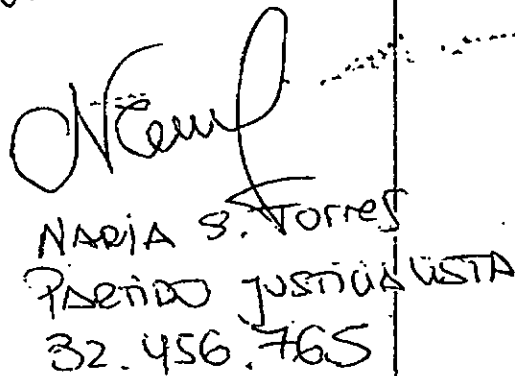 NADIA S. Torres
PARTIDO JUSTICIALISTA
32.456.765